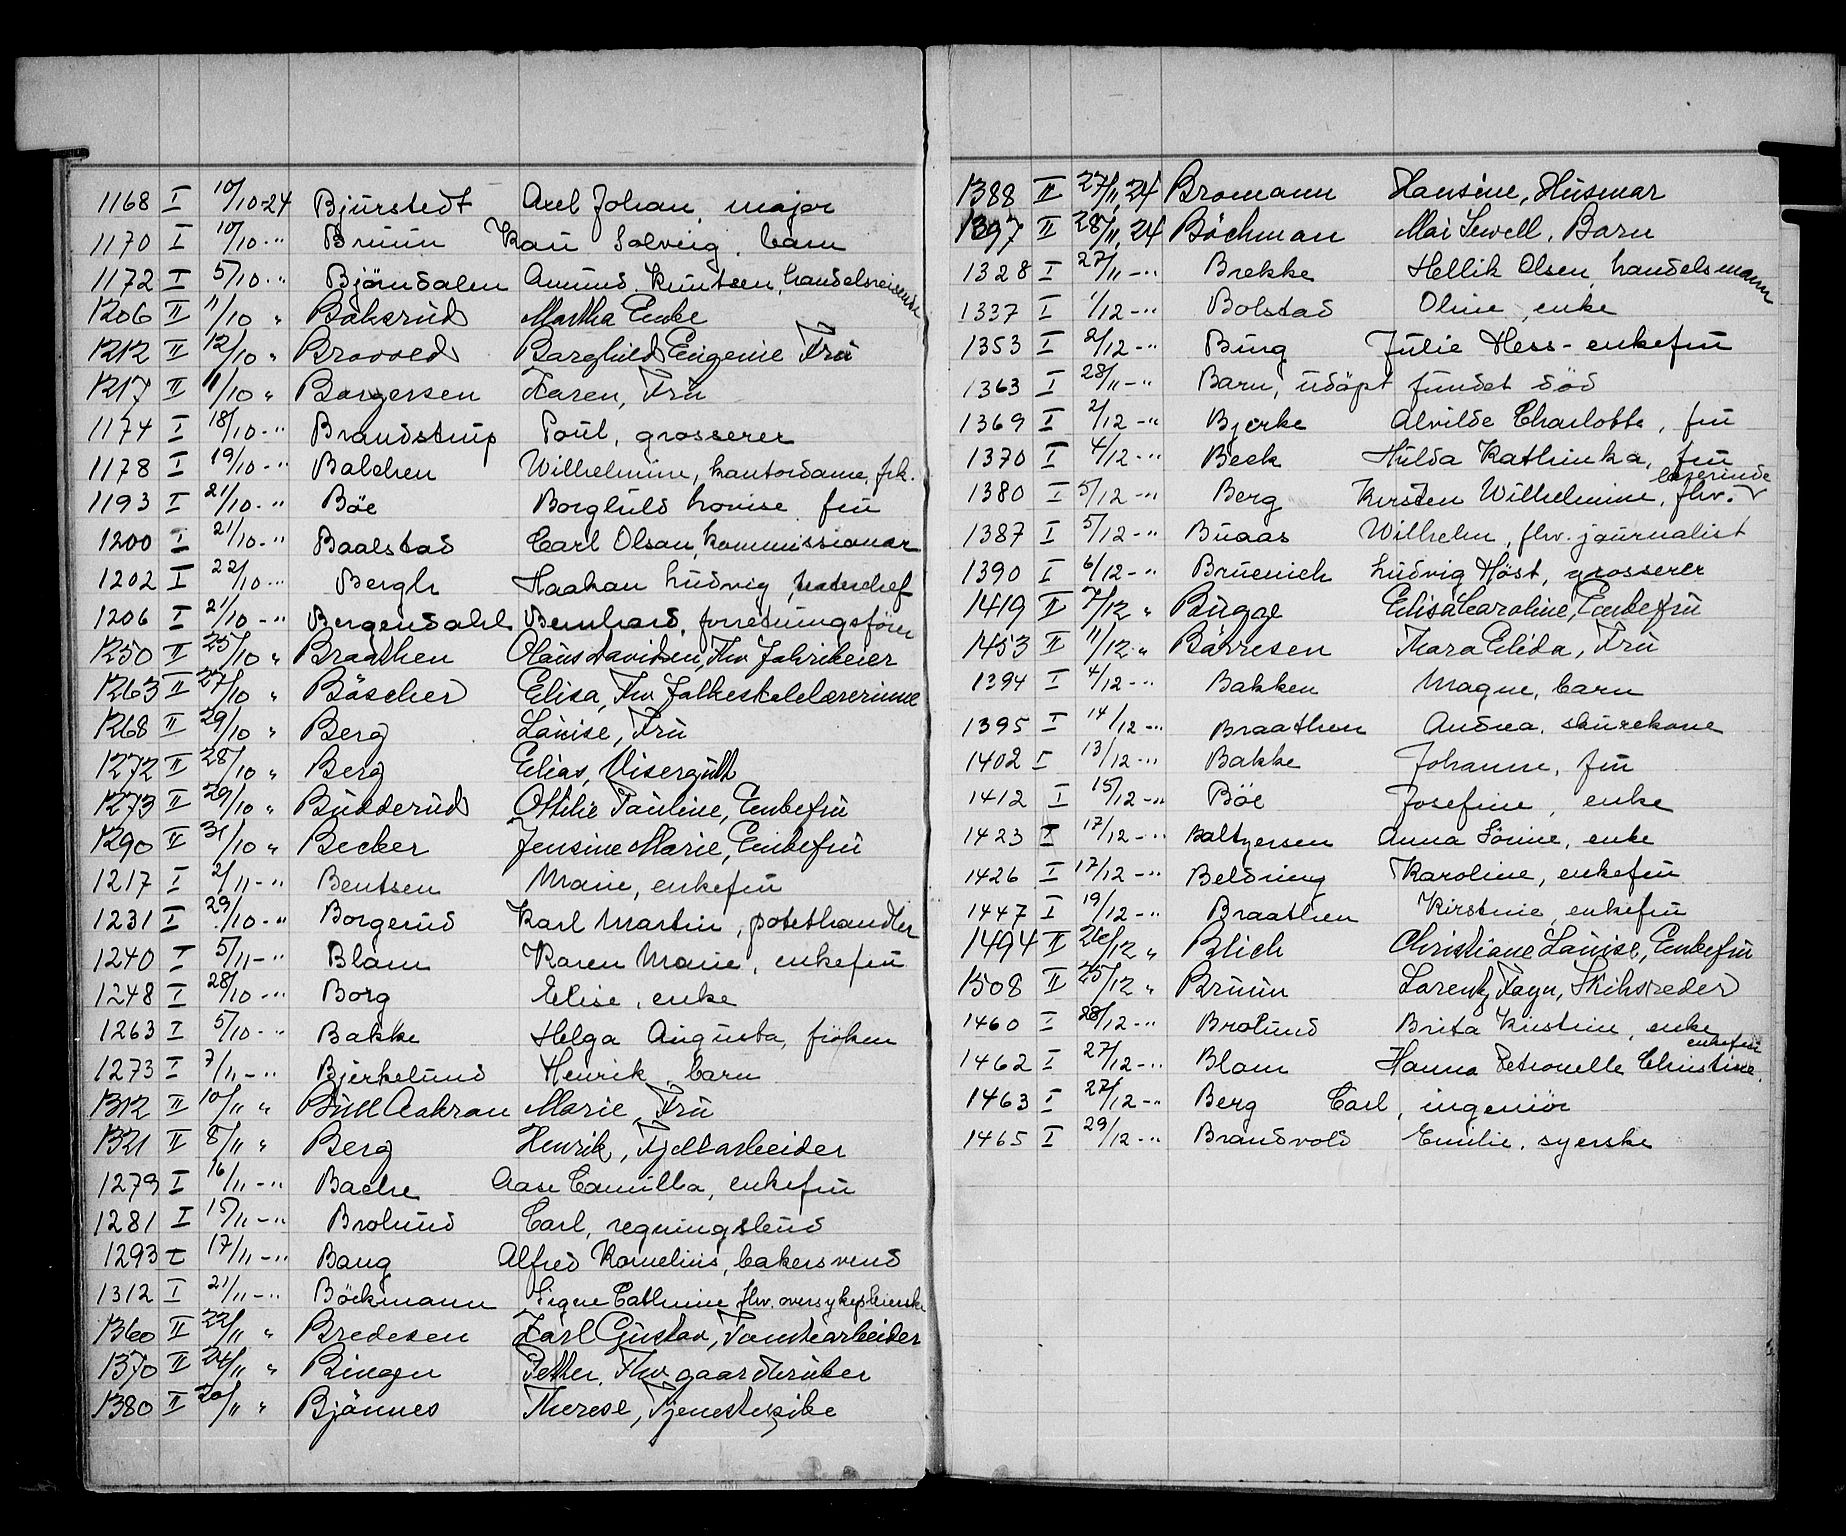 1168 I 10/10-24 Bjurstedt Axel Johan, major
1170 I 10/10-" Bruun Kari Solveig, barn
1172 I 5/10-" Bjørndalen Amund Knutsen, handelsreisende
1206 II 11/10 " Bakerud Martha Enke
1212 II 12/10 " Bravold Borghild Eugenie Fru
1217 II 11/10 " Borgersen Karen, Fru
1174 I 18/10-" Brandstrup Poul, grosserer
1178 I 19/10-" Balchen Wilhelmine, kontordame, frk.
1193 I 21/10-" Böe Borghild Lovise fru
1200 I 21/10-" Baalstad Carl Olsen, kommissionær
1202 I 22/10-" Bergh Haakon Ludvig, teaterchef
1206 I 21/10-" Bergendahl Bernhard, forretningsfører
1250 II 25/10 " Braathen Olaus Davidsen, Fhv. Fabrikeier
1263 II 27/10 " Böscher Elisa, Fhv Folkeskolelærerinne
1268 II 29/10 " Berg Lovise, Fru
1272 II 28/10 " Berg Elias, Visergutt
1273 II 29/10 " Budderud Ottilie Pauline, Enkefru
1290 II 31/10 " Becker Jensine Marie, Enkefru
1217 I 2/11-" Bentsen Marie, enkefru
1231 I 29/10-" Borgerud Karl Martin, potethandler
1240 I 5/11-" Blom Karen Marie, enkefru
1248 I 28/10-" Borg Elise, enke
1263 I 5/10-" Bakke Helga Augusta, fröken
1273 I 7/11-" Bjerkelund Henrik, barn
1312 II 10/11 " Bull Aakran Marie, Fru
1321 II 8/11 " Berg Henrik, Fjeldarbeider
1279 I 16/11-" Bache Aase Camilla, enkefru
1281 I 15/11-" Brolund Carl, regningsbud
1293 I 17/11-" Bang Alfred Kornelius, bakersvend
1312 I 21/11-" Böckmann Signe Cathrine fhv. oversykepleierske
1360 II 22/11 " Bredesen Karl Gustav, Tomtearbeider
1370 II 24/11 " Bingen Petter, Fhv gaardbruker
1380 II 20/11 " Bjönnes Therese, Tjenestepike
1388 II 27/11,24 Bromann Hansine, Husmor
1397 II 28/11,24 Böchman Mai Sewell, Barn
1328 I 27/11-" Brekke Hellik Olsen, handelsmann
1337 I 1/12-" Bolstad Oline, enke
1353 I 2/12-" Bing Julie Hess- enkefru
1363 I 28/11-" Barn, udöpt fundet död
1369 I 2/12-" Bjerke Alvilde Charlotte, fru
1370 I 4/12-" Beck Hulda Kathinka, fru
1380 I 5/12-" Berg Kirsten Wilhelmine, fhv. lærerinde
1387 I 5/12-" Buaas Wilhelm, fhv. journalist
1390 I 6/12-" Bruenich Ludvig Höst, grosserer
1419 II 7/12 " Bugge Elisa Caroline, Enkefru
1453 II 11/12 " Börresen Thora Elida, Fru
1394 I 4/12-" Bakken Magne, barn
1395 I 14/12-" Braathen Andrea, skurekone
1402 I 13/12-" Bakke Johanne, fru
1412 I 15/12-" Böe Josefine, enke
1423 I 17/12-" Baltzersen Anna Sonine, enke
1426 I 17/12-" Beldring Karoline, enkefru
1447 I 19/12-" Braathen Kirstine, enkefru
1494 II 26/12 " Blich Christiane Lovise, Enkefru
1508 II 25/12 " Bruun Lorentz Fayn, Skibsreder
1460 I 28/12-" Brolund Brita Kirstine, enke
1462 I 27/12-" Blom Hanna Petronelle Christine, enkefru
1463 I 27/12-" Berg Carl, ingeniör
1465 I 29/12-" Brandvold Emilie, syerske